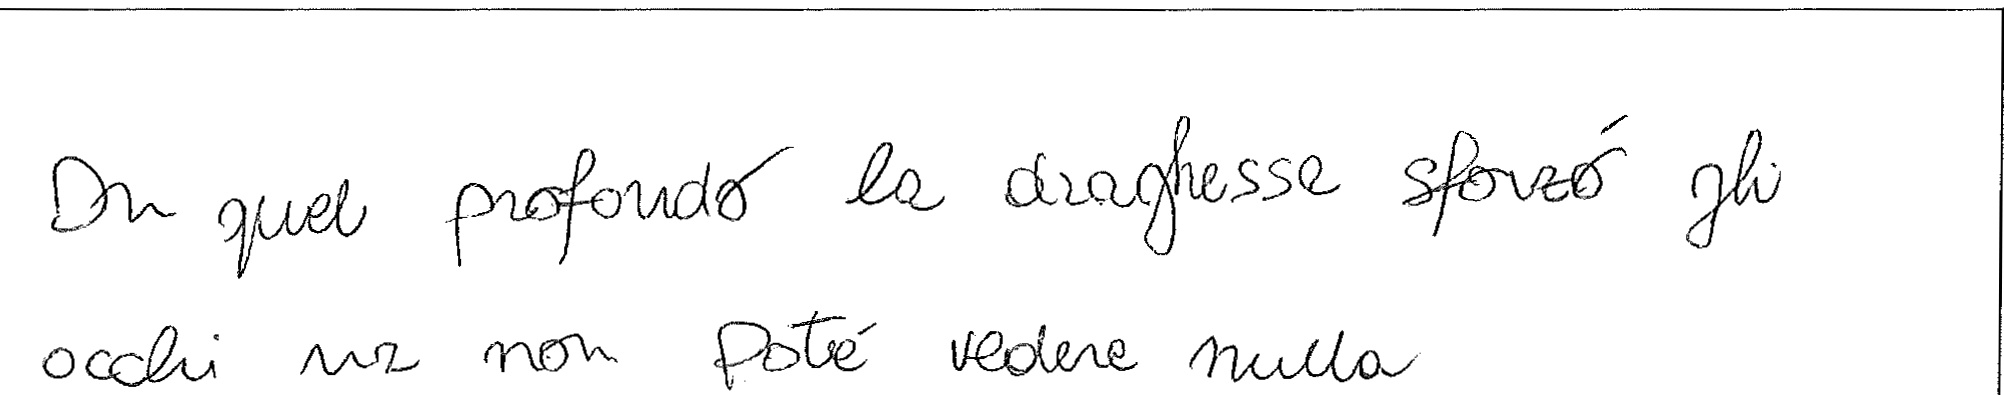 Da quel profondo la draghessa sforzó gli
occhi ma non poté vedere nulla